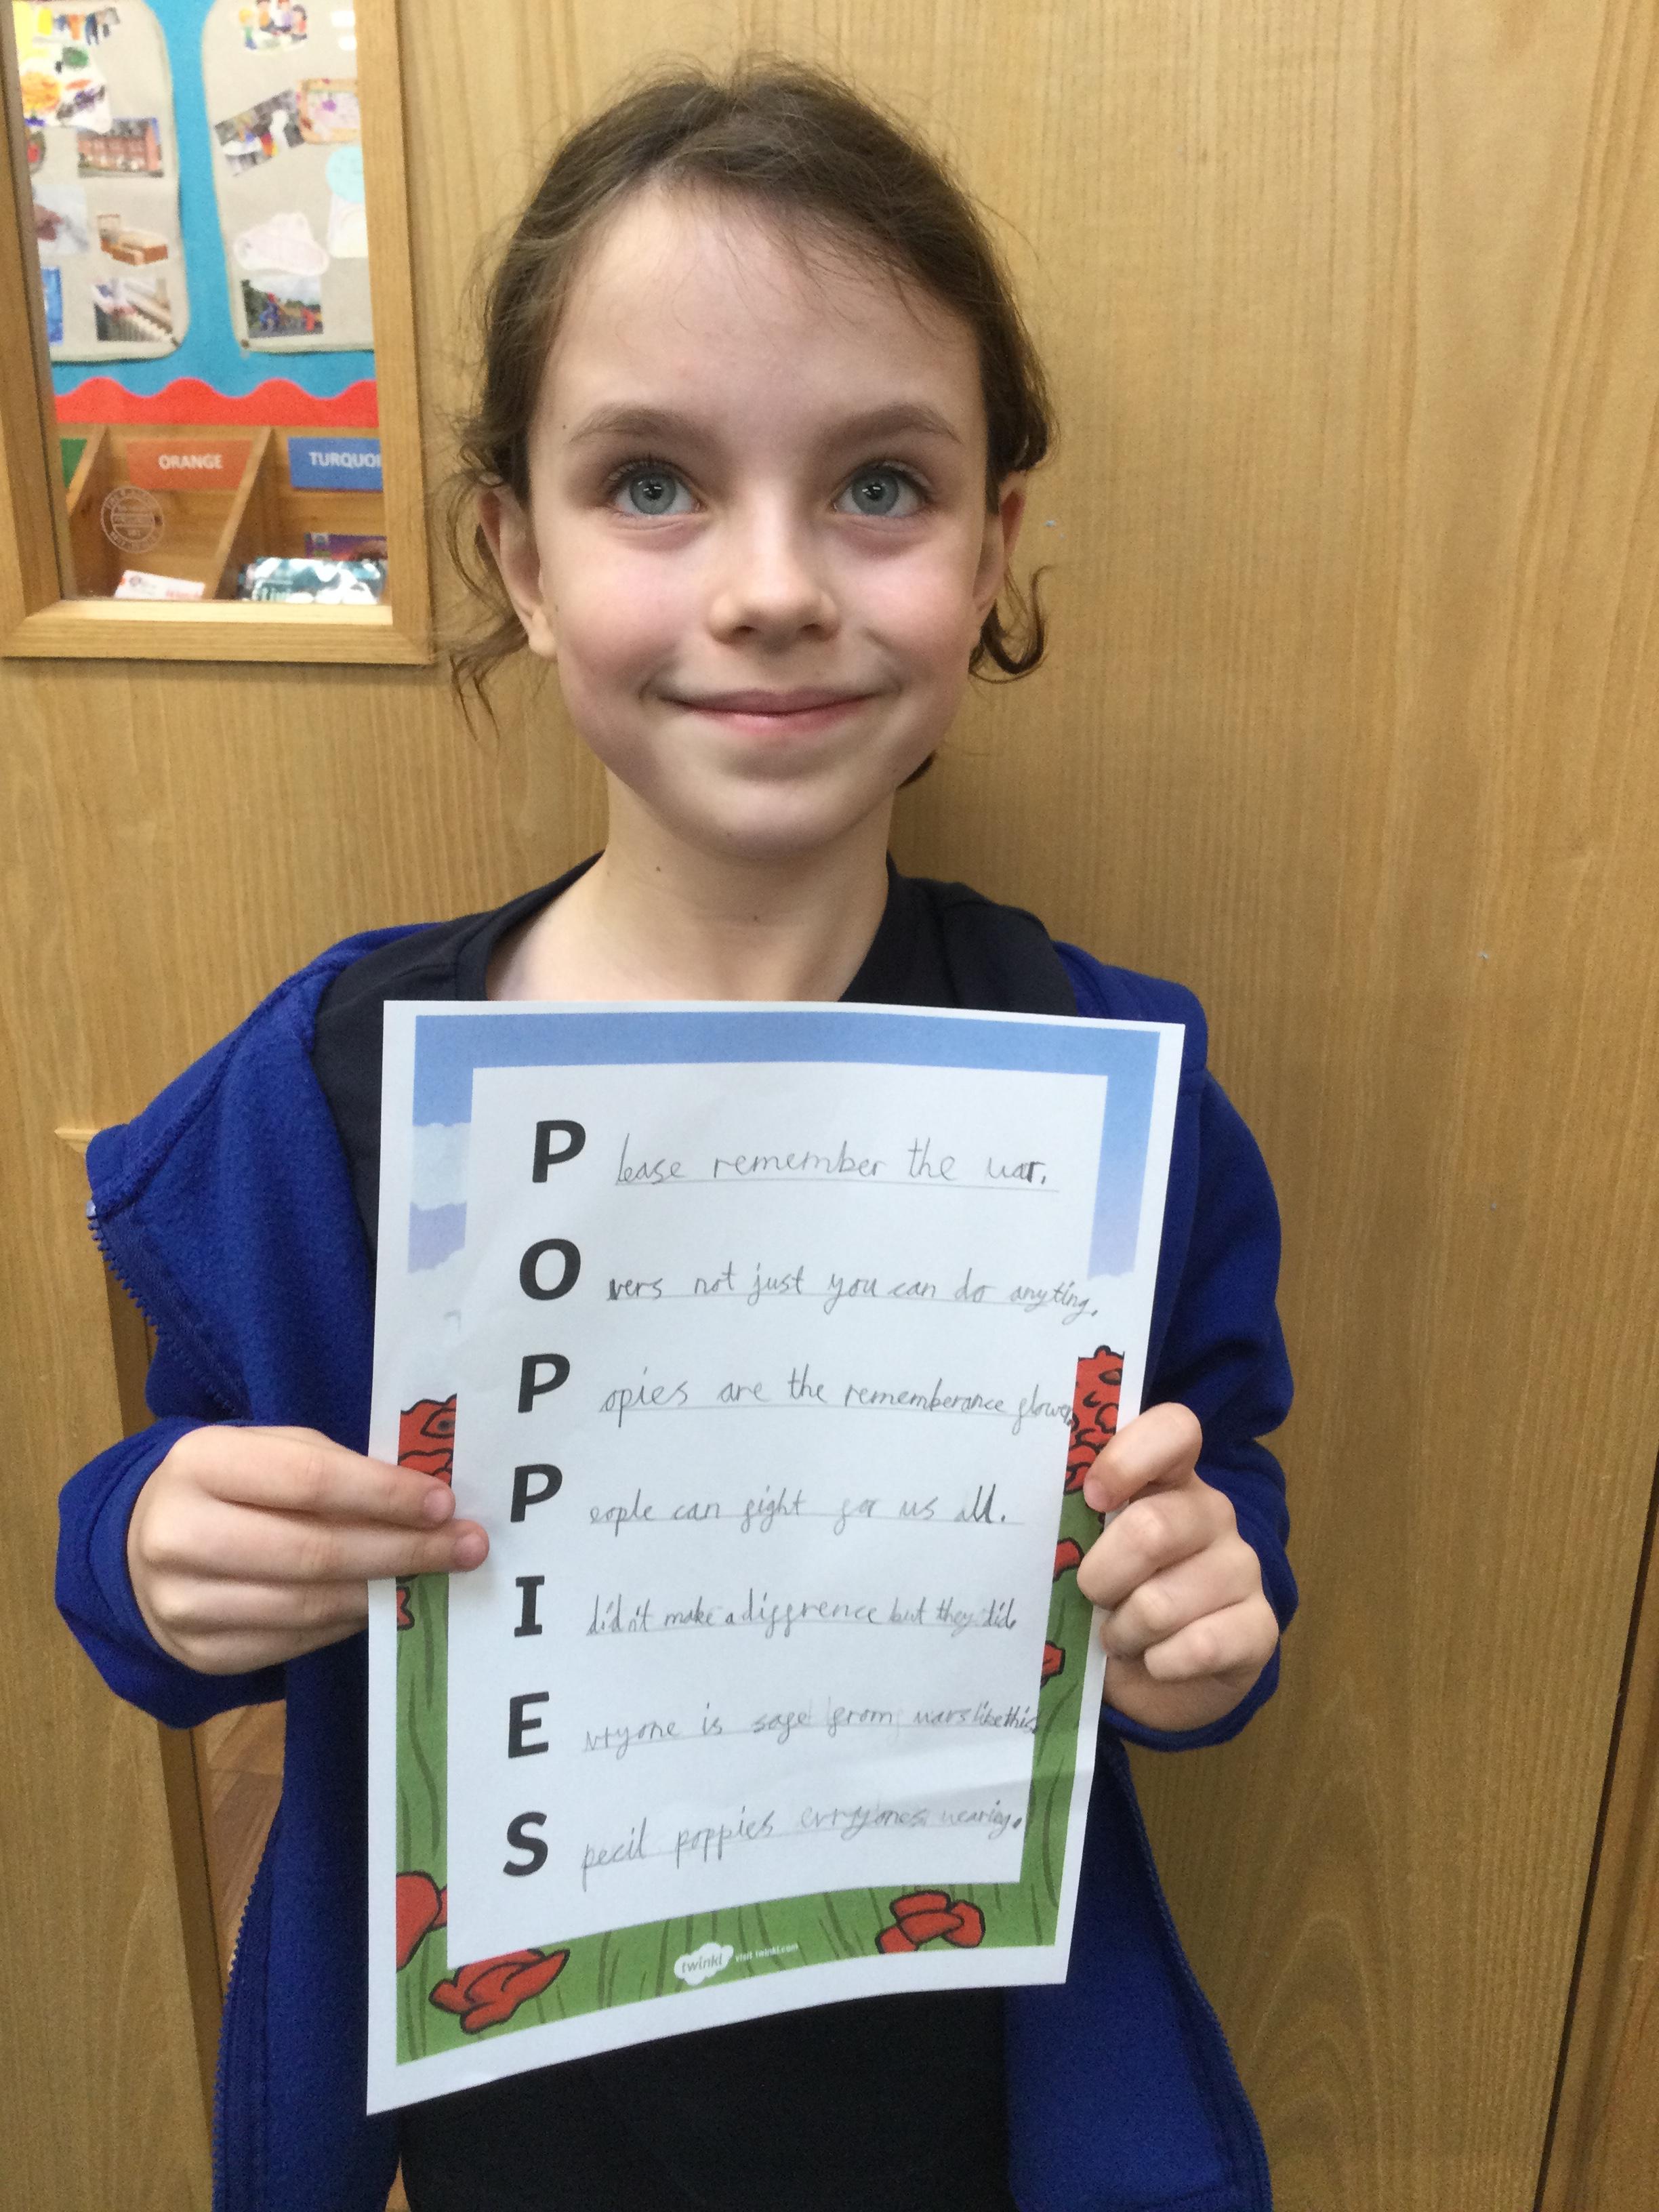 ORANGE
TURQUOI
Please remember the war.
Overs not just you can do anyting.
Popies are the rememberance flower
People can fight for us all.
I didn't make a diffrence but they did.
Evryone is safe from wars like this
Specil poppies evryones wearing.
twinkl visit twinkl.com